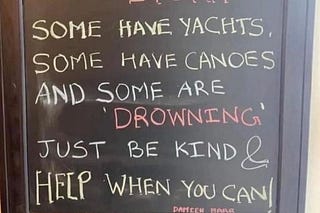 SOME HAVE YACHTS,
SOME HAVE CANOES
AND SOME ARE
'DROWNING'
JUST BE KIND &
HELP WHEN YOU CAN!